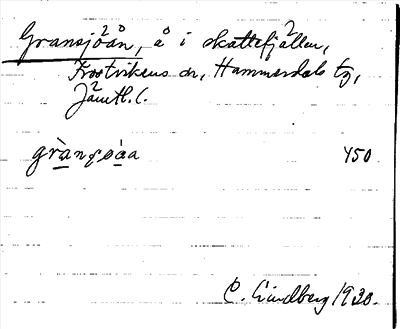 Gransjöån, å i skattefjällen,
Frostvikens sn, Hammerdals tg,
Jämtl. l.
gràngsòaa 450
C. Lindberg 1930.